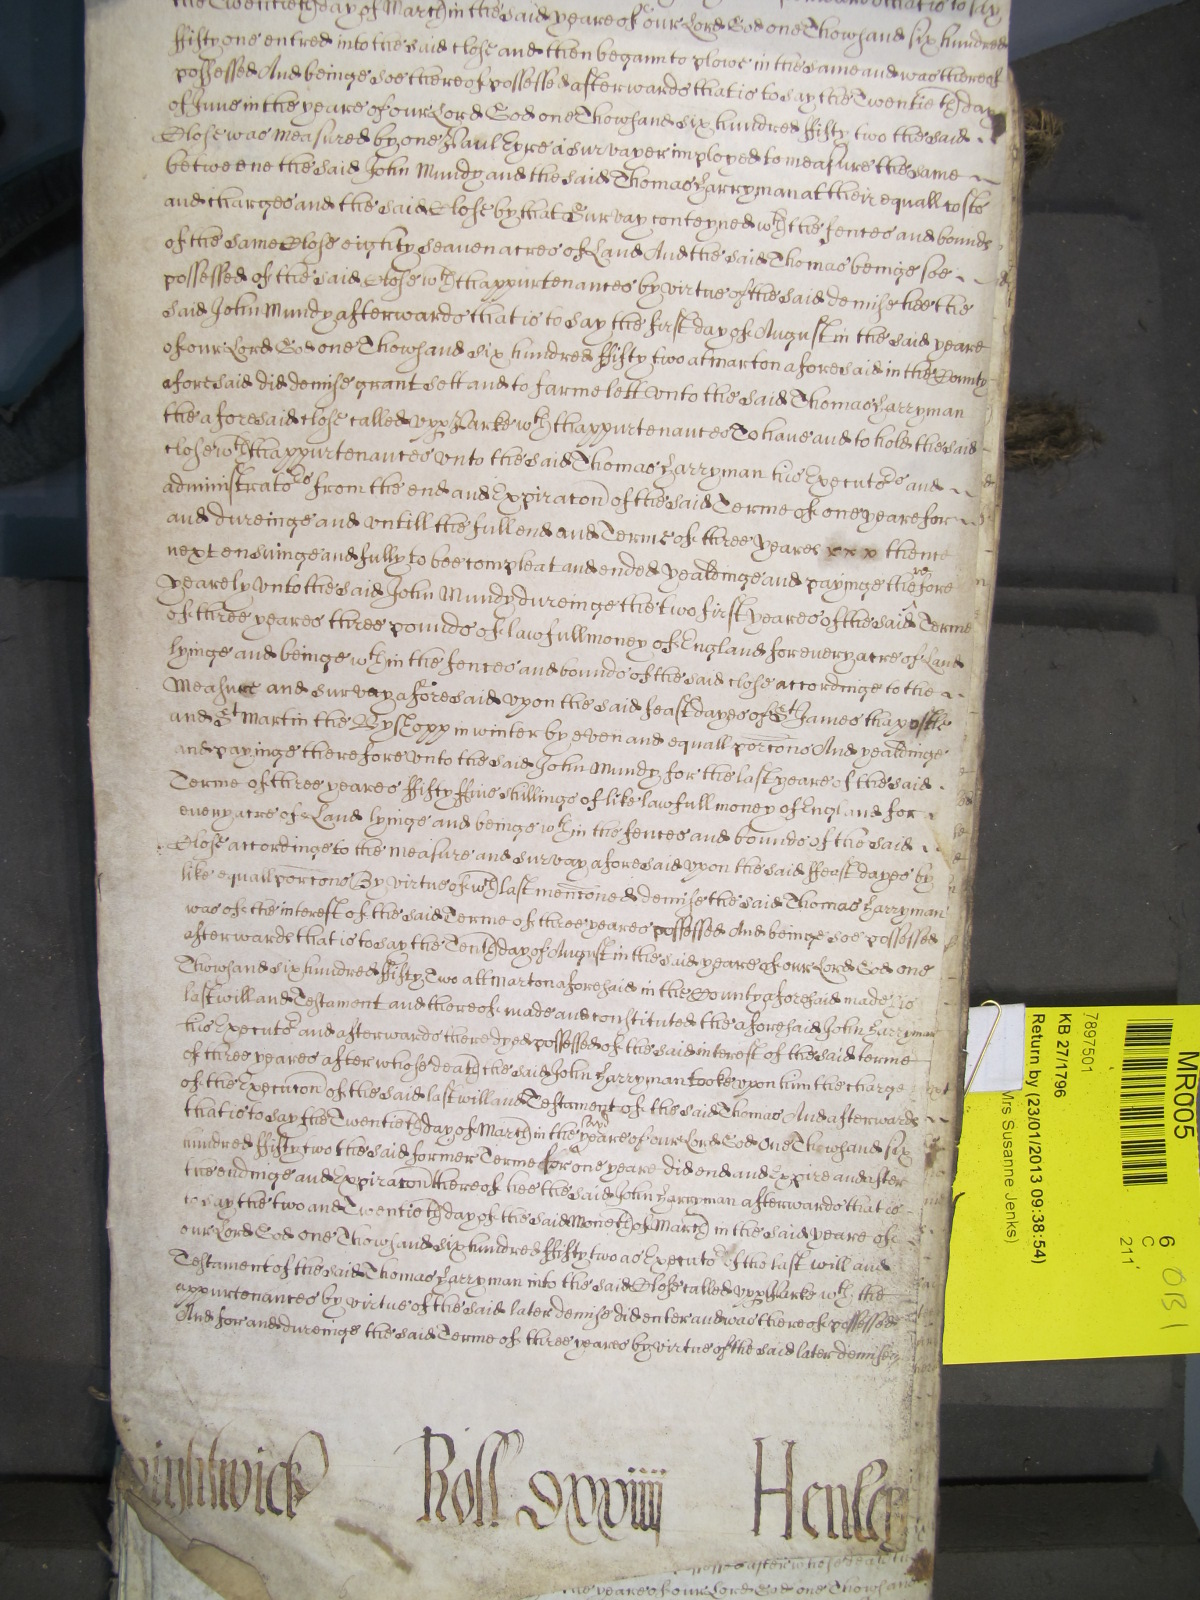 the Twentieth day of March in the said yeare of our Lord God one Thowsand six hundred
fifty one entred into the said close and then begann to plowe in the same and was thereof
possessed And beinge soe thereof possessed afterwards that is to say the Twentieth day
of June in the yeare of our Lord God one Thowsand six hundred fifty two the said
Close was measured by one Paul Eyre a survayer imployed to measure the same
betweene the said John Mundy and the said Thomas Harryman at their equall costs
and charges and the said Close by that Survay conteyned wth the fences and bounds
of the same Close eighty seaven acres of Land And the said Thomas beinge soe
possessed of the said Close wth thappurtenances by virtue of the said demise hee the
said John Mundy afterwards that is to say the first day of August in the said yeare
of our Lord God one Thowsand six hundred fifty two at Marton aforesaid in the County
aforesaid did demise grant sett and to farme lett unto the said Thomas Harryman
the aforesaid close called Upp Parke wth thappurtenances To have and to hold the said
close wth thappurtenances unto the said Thomas Harryman his Executors and
administrators from the end and Expiracon of the said Terme of one yeare for
and dureinge and untill the full end and Terme of three yeares xxx thence
next ensuinge and fully to bee compleat and ended yealdinge and payinge therefore
yearely unto the said John Mundy dureinge the two first yeares of the said Terme
of three yeares three pounds of lawfull money of England for every acre of Land
lyinge and beinge wth in the fences and bounds of the said close accordinge to the
Measure and survay aforesaid upon the said feast dayes of St James thapostle
and St Martin the Byshopp in winter by even and equall porcons And yealdinge
and payinge therefore unto the said John Mundy for the last yeare of the said
Terme of three yeares fifty five shillings of like lawfull money of England for
every acre of Land lyinge and beinge wth in the fences and bounds of the said
Close accordinge to the measure and survay aforesaid upon the said ffeast dayes by
like equall porcons By virtue of wch last mencioned demise the said Thomas Harryman
was of the interest of the said Terme of three yeares possessed And beinge soe possessed
afterwards that is to say the Tenth day of August in the said yeare of our Lord God one
Thowsand six hundred fifty Two att Marton aforesaid in the County aforesaid made his
last will and Testament and thereof made and constituted the aforesaid John Harryman
his Executor and afterwards there dyed possessed of the said interest of the said terme
of three yeares after whose death the said John Harryman tooke upon him the charge
of the Execucon of the said last will and Testament of the said Thomas And afterwards
that is to say the Twentieth day of March in the said yeare of our Lord God One Thowsand six
hundred fifty two the said former Terme for one yeare did end and Expire and after
the endinge and Expiracon thereof hee the said John Harryman afterwards that is
to say the two and Twentieth day of the said Moneth of March in the said yeare of
our Lord God one Thowsand six hundred fifty two as Executor of the last will and
Testament of the said Thomas Harryman into the said Close called Upp Parke wth the
appurtenances by virtue of the said later demise did enter and was thereof possessed
And for and dureinge the said Terme of three yeares by virtue of the said later demise
Roll
Henley
after whose death
yeare of our Lord God one Thowsand
MR005
6
C
211
7897501
KB 27/1796
Return by (23/01/2013 09:38:54)
Mrs Susanne Jenks)